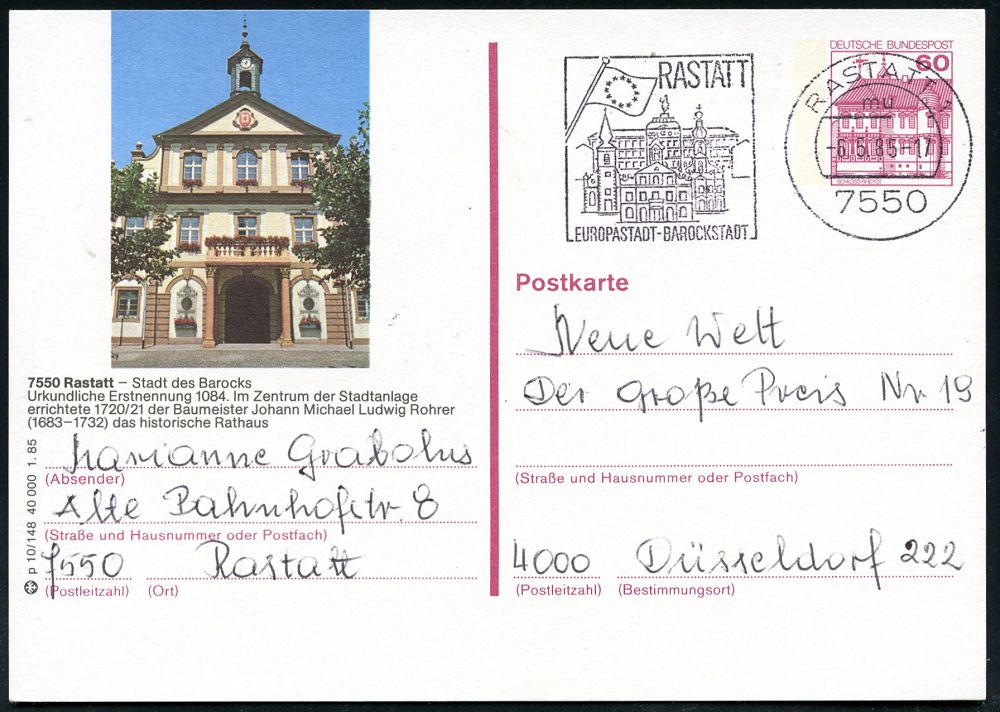 7550 Rastatt – Stadt des Barocks
Urkundliche Erstnennung 1084. Im Zentrum der Stadtanlage
errichtete 1720/21 der Baumeister Johann Michael Ludwig Rohrer
(1683–1732) das historische Rathaus
Marianne Grabolus
(Absender)
Alte Bahnhofstr. 8
(Straße und Hausnummer oder Postfach)
7550 Rastatt
(Postleitzahl) (Ort)
p 10/148 40 000 1. 85
RASTATT
EUROPASTADT-BAROCKSTADT
DEUTSCHE BUNDESPOST
60
SCHLOSS RHEYDT
RASTATT 1
mu
-6.6.85-17
7550
Postkarte
Neue Welt
Der Große Preis Nr. 19
(Straße und Hausnummer oder Postfach)
4000 Düsseldorf 222
(Postleitzahl) (Bestimmungsort)